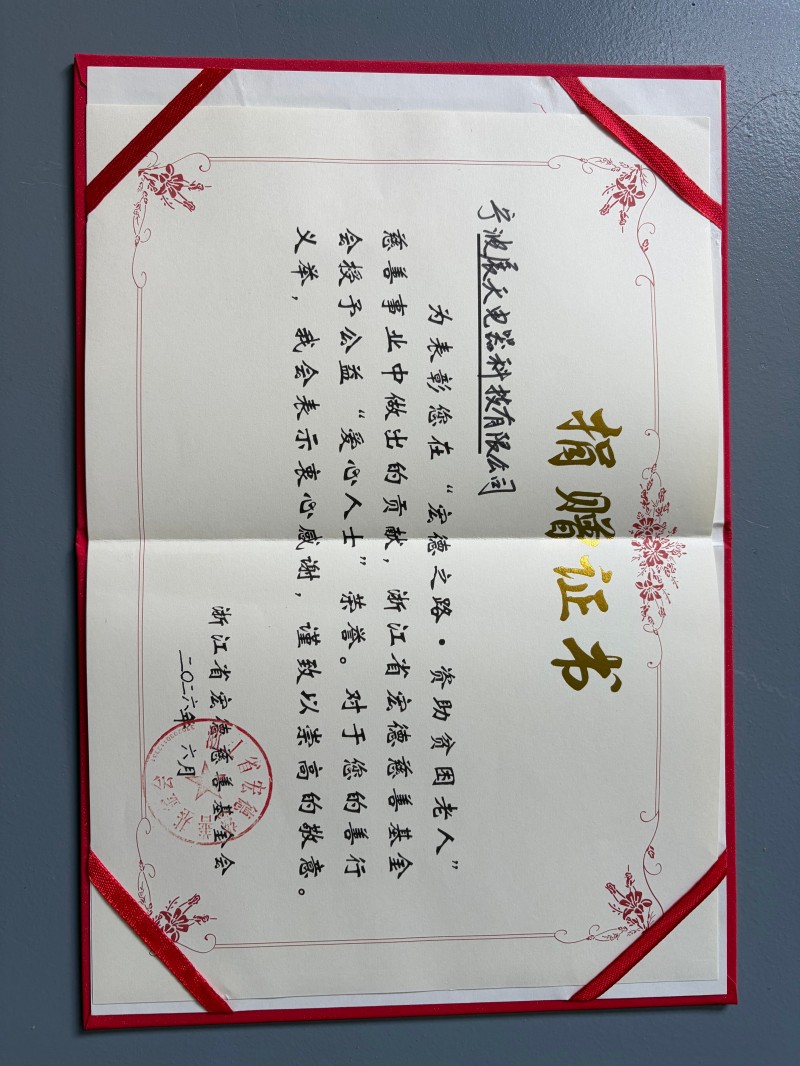 捐赠证书
宁波辰天电器科技有限公司
为表彰您在“宏德之路·资助贫困老人”
慈善事业中做出的贡献，浙江省宏德慈善基金
会授予公益“爱心人士”荣誉。对于您的善行
义举，我会表示衷心感谢，谨致以崇高的敬意。
浙江省宏德慈善基金会
二〇二六年 六月